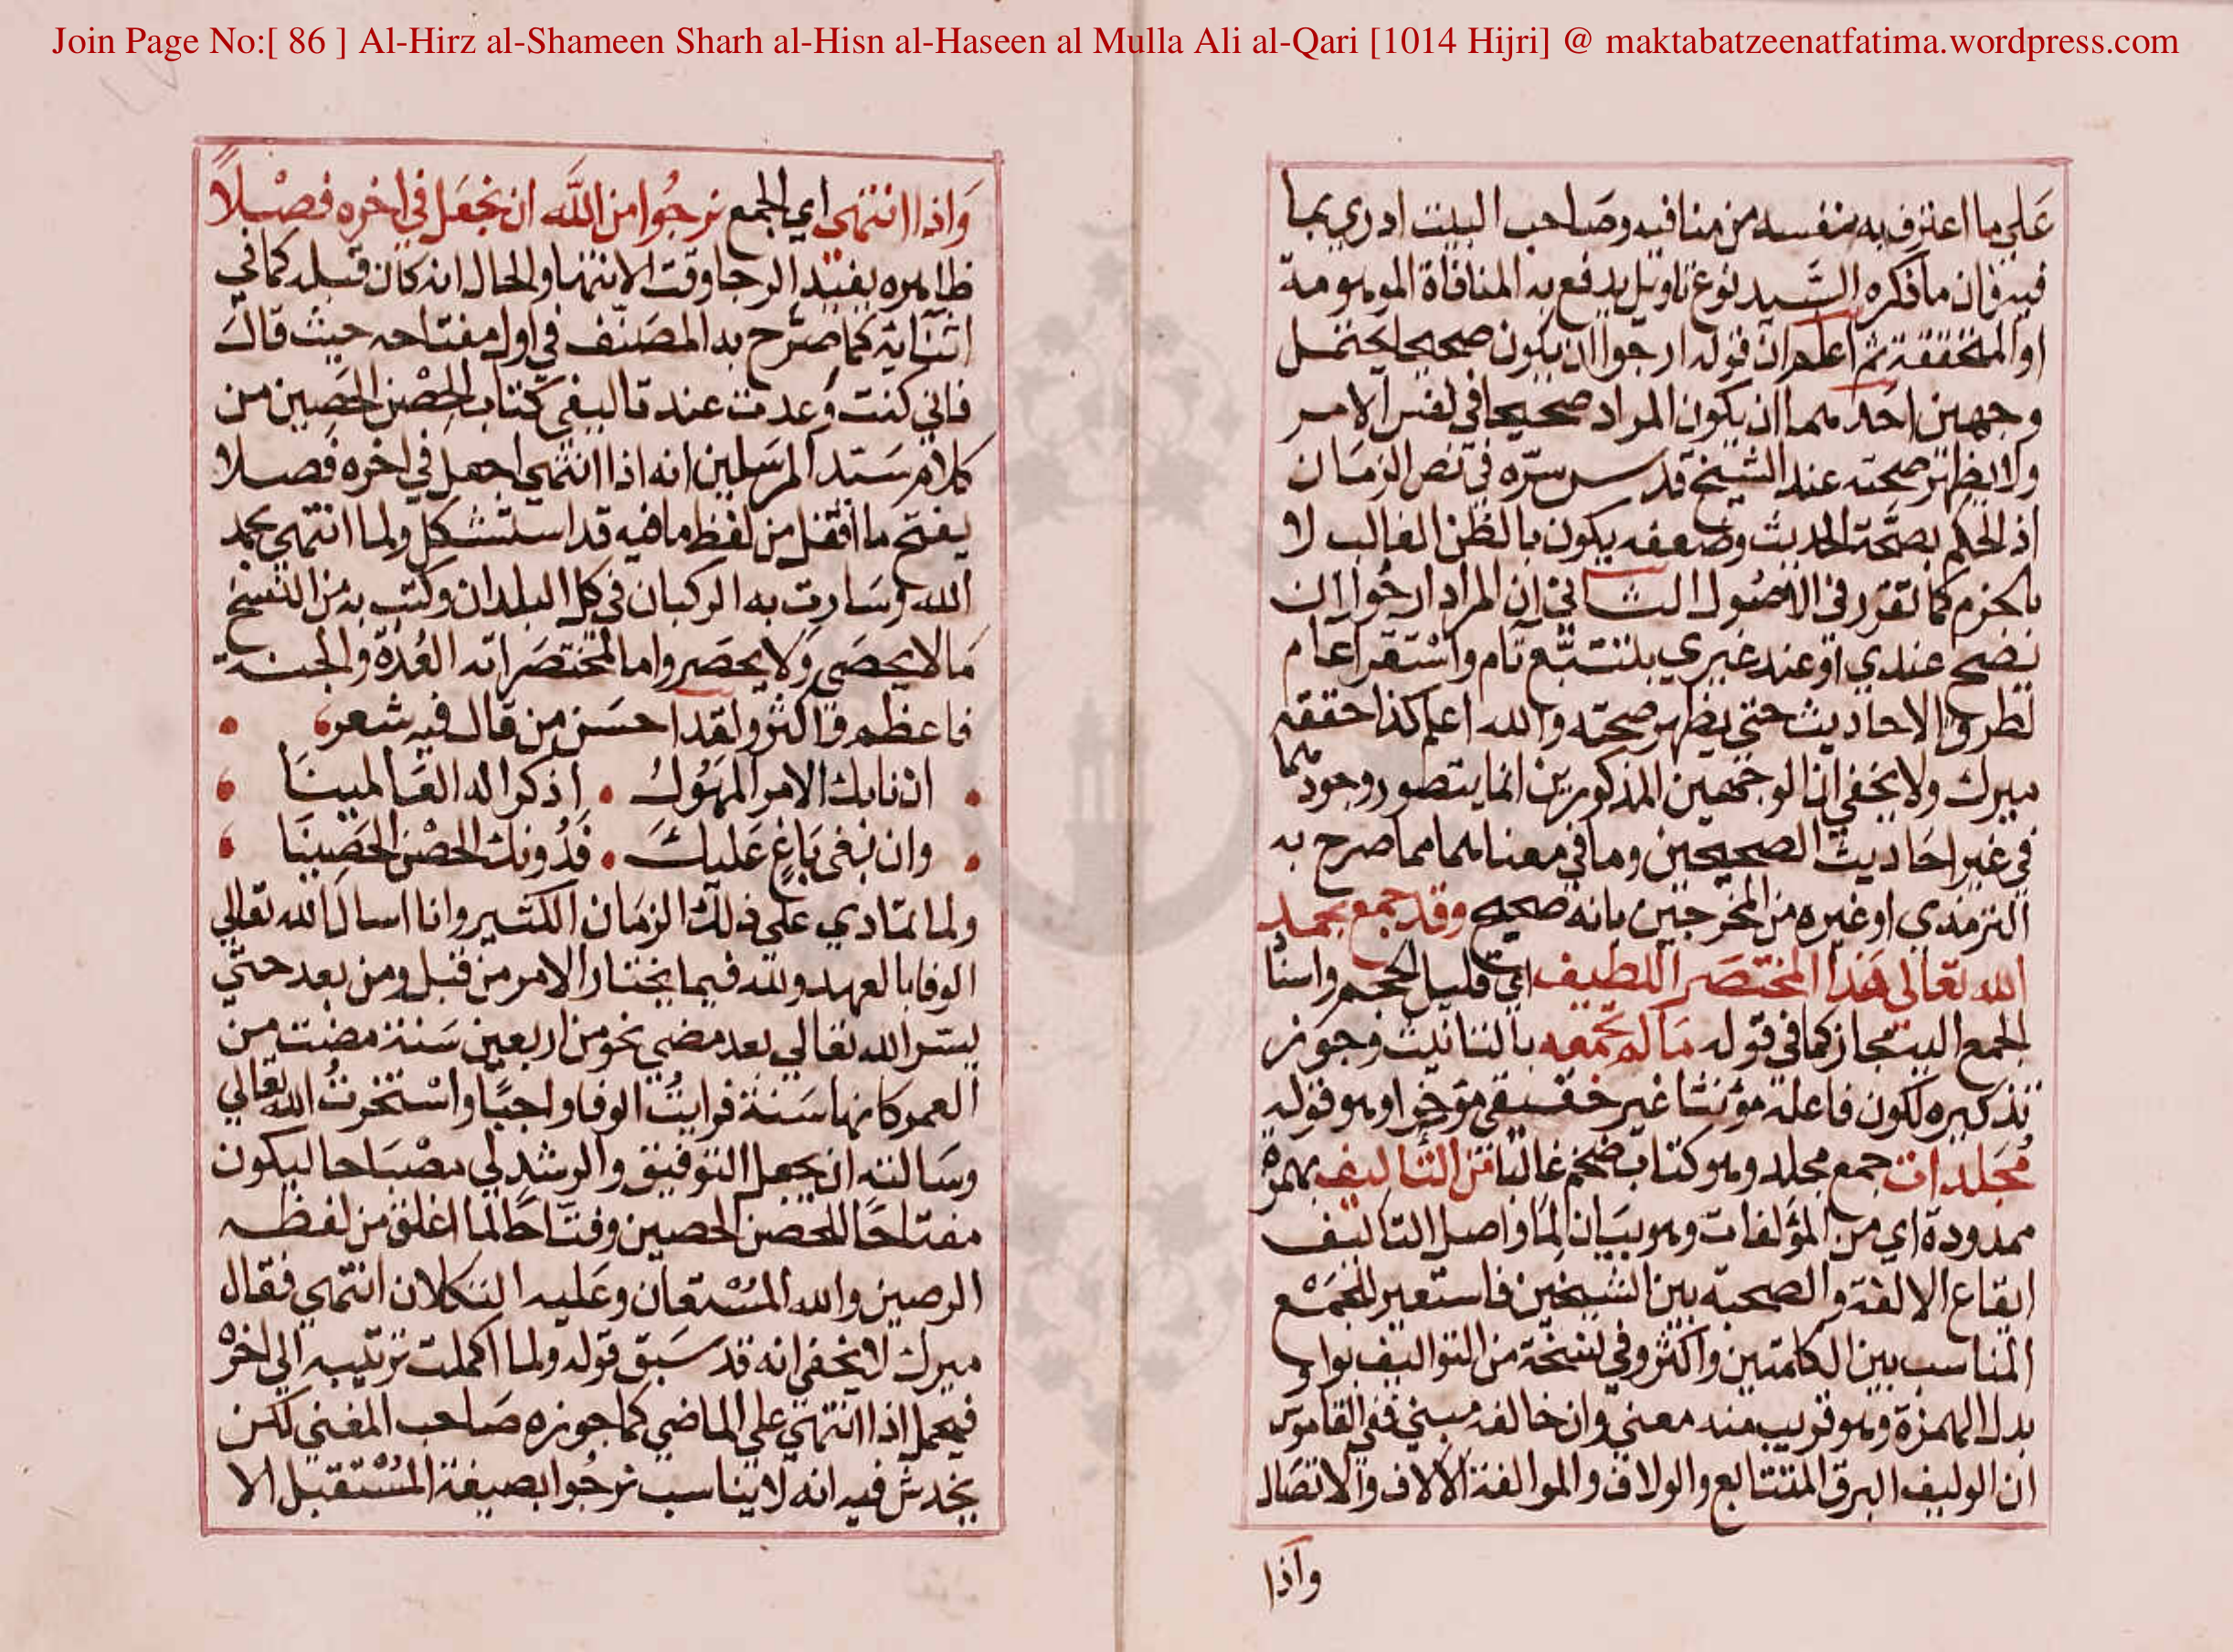 Join Page No:[ 86 ] Al-Hirz al-Shameen Sharh al-Hisn al-Haseen al Mulla Ali al-Qari [1014 Hijri] @ maktabatzeenatfatima.wordpress.com
علي ما اعترف به بنفسه من منافيه وصاحب البيت ادري بما
فيه فان ما ذكره السيد نوع تاويل يدفع به المنافاة الموهومة
او المتحققة ثم اعلم ان قوله ارجوا ان يكون صحيحا يحتمل
وجهين احدهما ان يكون المراد صحيحا في نفس الامر
ولا يظهر صحته عند الشيخ قدس سره في نص الزمان
اذ الحكم بصحة الحديث وضعفه يكون بالظن الغالب لا
بالجزم كما تقرر في الاصول الثاني ان المراد ارجوا ان
يصح عندي او عند غيري بتتبع تام واستقرا عام
لطرق الاحاديث حتي يظهر صحته والله اعلم كذا حققه
ميرك ولا يخفي ان الوجهين المذكورين انما يتصور وجودهما
في غير احاديث الصحيحين وما في معناهما مما صرح به
الترمذي او غيره من المخرجين بانه صحيح وقد جمع بحمد
الله تعالي هذا المختصر اللطيف اي قليل الحجم واسناد
الجمع اليه مجاز كما في قوله ما لم تجمعه بالتانيث وجوز
تذكيره لكون فاعله مؤنثا غير حقيقي مؤخرا وهو قوله
مجلدات جمع مجلد وهو كتاب ضخم غالبا من التاليف بهمزة
ممدودة اي من المؤلفات وهو بيان لما واصل التاليف
ايقاع الالفة والصحبة بين الشيخين فاستعير للجمع
المناسب بين الكلمتين واكثر وفي نسخة من التواليف بواو
بدل الهمزة وهو قريب منه معني وان خالفه مبني ففي القاموس
ان الوليف البرق المتتابع والولاف والموالفة الالاف والاتصال
واذا
واذا انتهي اي الجمع نرجوا من الله ان نجعل في اخره فصلا
ظاهره يفيد الرجا وقت الانتها والحال انه كان قبله كما في
اثنائه كما صرح به المصنف في اول مفتاحه حيث قال
فاني كنت وعدت عند تاليفي كتاب الحصن الحصين من
كلام سيد المرسلين انه اذا انتهي اجعل في اخره فصلا
يفتح ما اقفل من لفظ ما فيه قد استشكل ولما انتهي بحمد
الله وسارت به الركبان في كل البلدان وكتب به من النسخ
ما لا يحصي ولا يحصر واما المختصراته العدة والجنة
فاعظم واكثر ولقد احسن من قال فيه شعر
ان نابك الامر المهول اذكر اله العالمينا
وان بغي باغ عليك فدونك الحصن الحصينا
ولما تمادي علي ذلك الزمان الكثير وانا اسال الله تعالي
الوفا بالعهد ولله فيما يختار الامر من قبل ومن بعد حتي
يسر الله تعالي بعد مضي نحو من اربعين سنة مضت من
العمر كانها سنة فرايت الوفا واجبا واستخرت الله تعالي
وسالته ان يجعل التوفيق والرشد لي مصباحا ليكون
مفتاحا للحصن الحصين وفتاحا لما اغلق من لفظه
الرصين والله المستعان وعليه التكلان انتهي فقال
ميرك لا يخفي انه قد سبق قوله ولما اكملت ترتيبه الي اخره
فيحمل اذا انتهي علي الماضي كما جوزه صاحب المغني لكن
يخدش فيه انه لا يناسب نرجوا بصيغة المستقبل الا